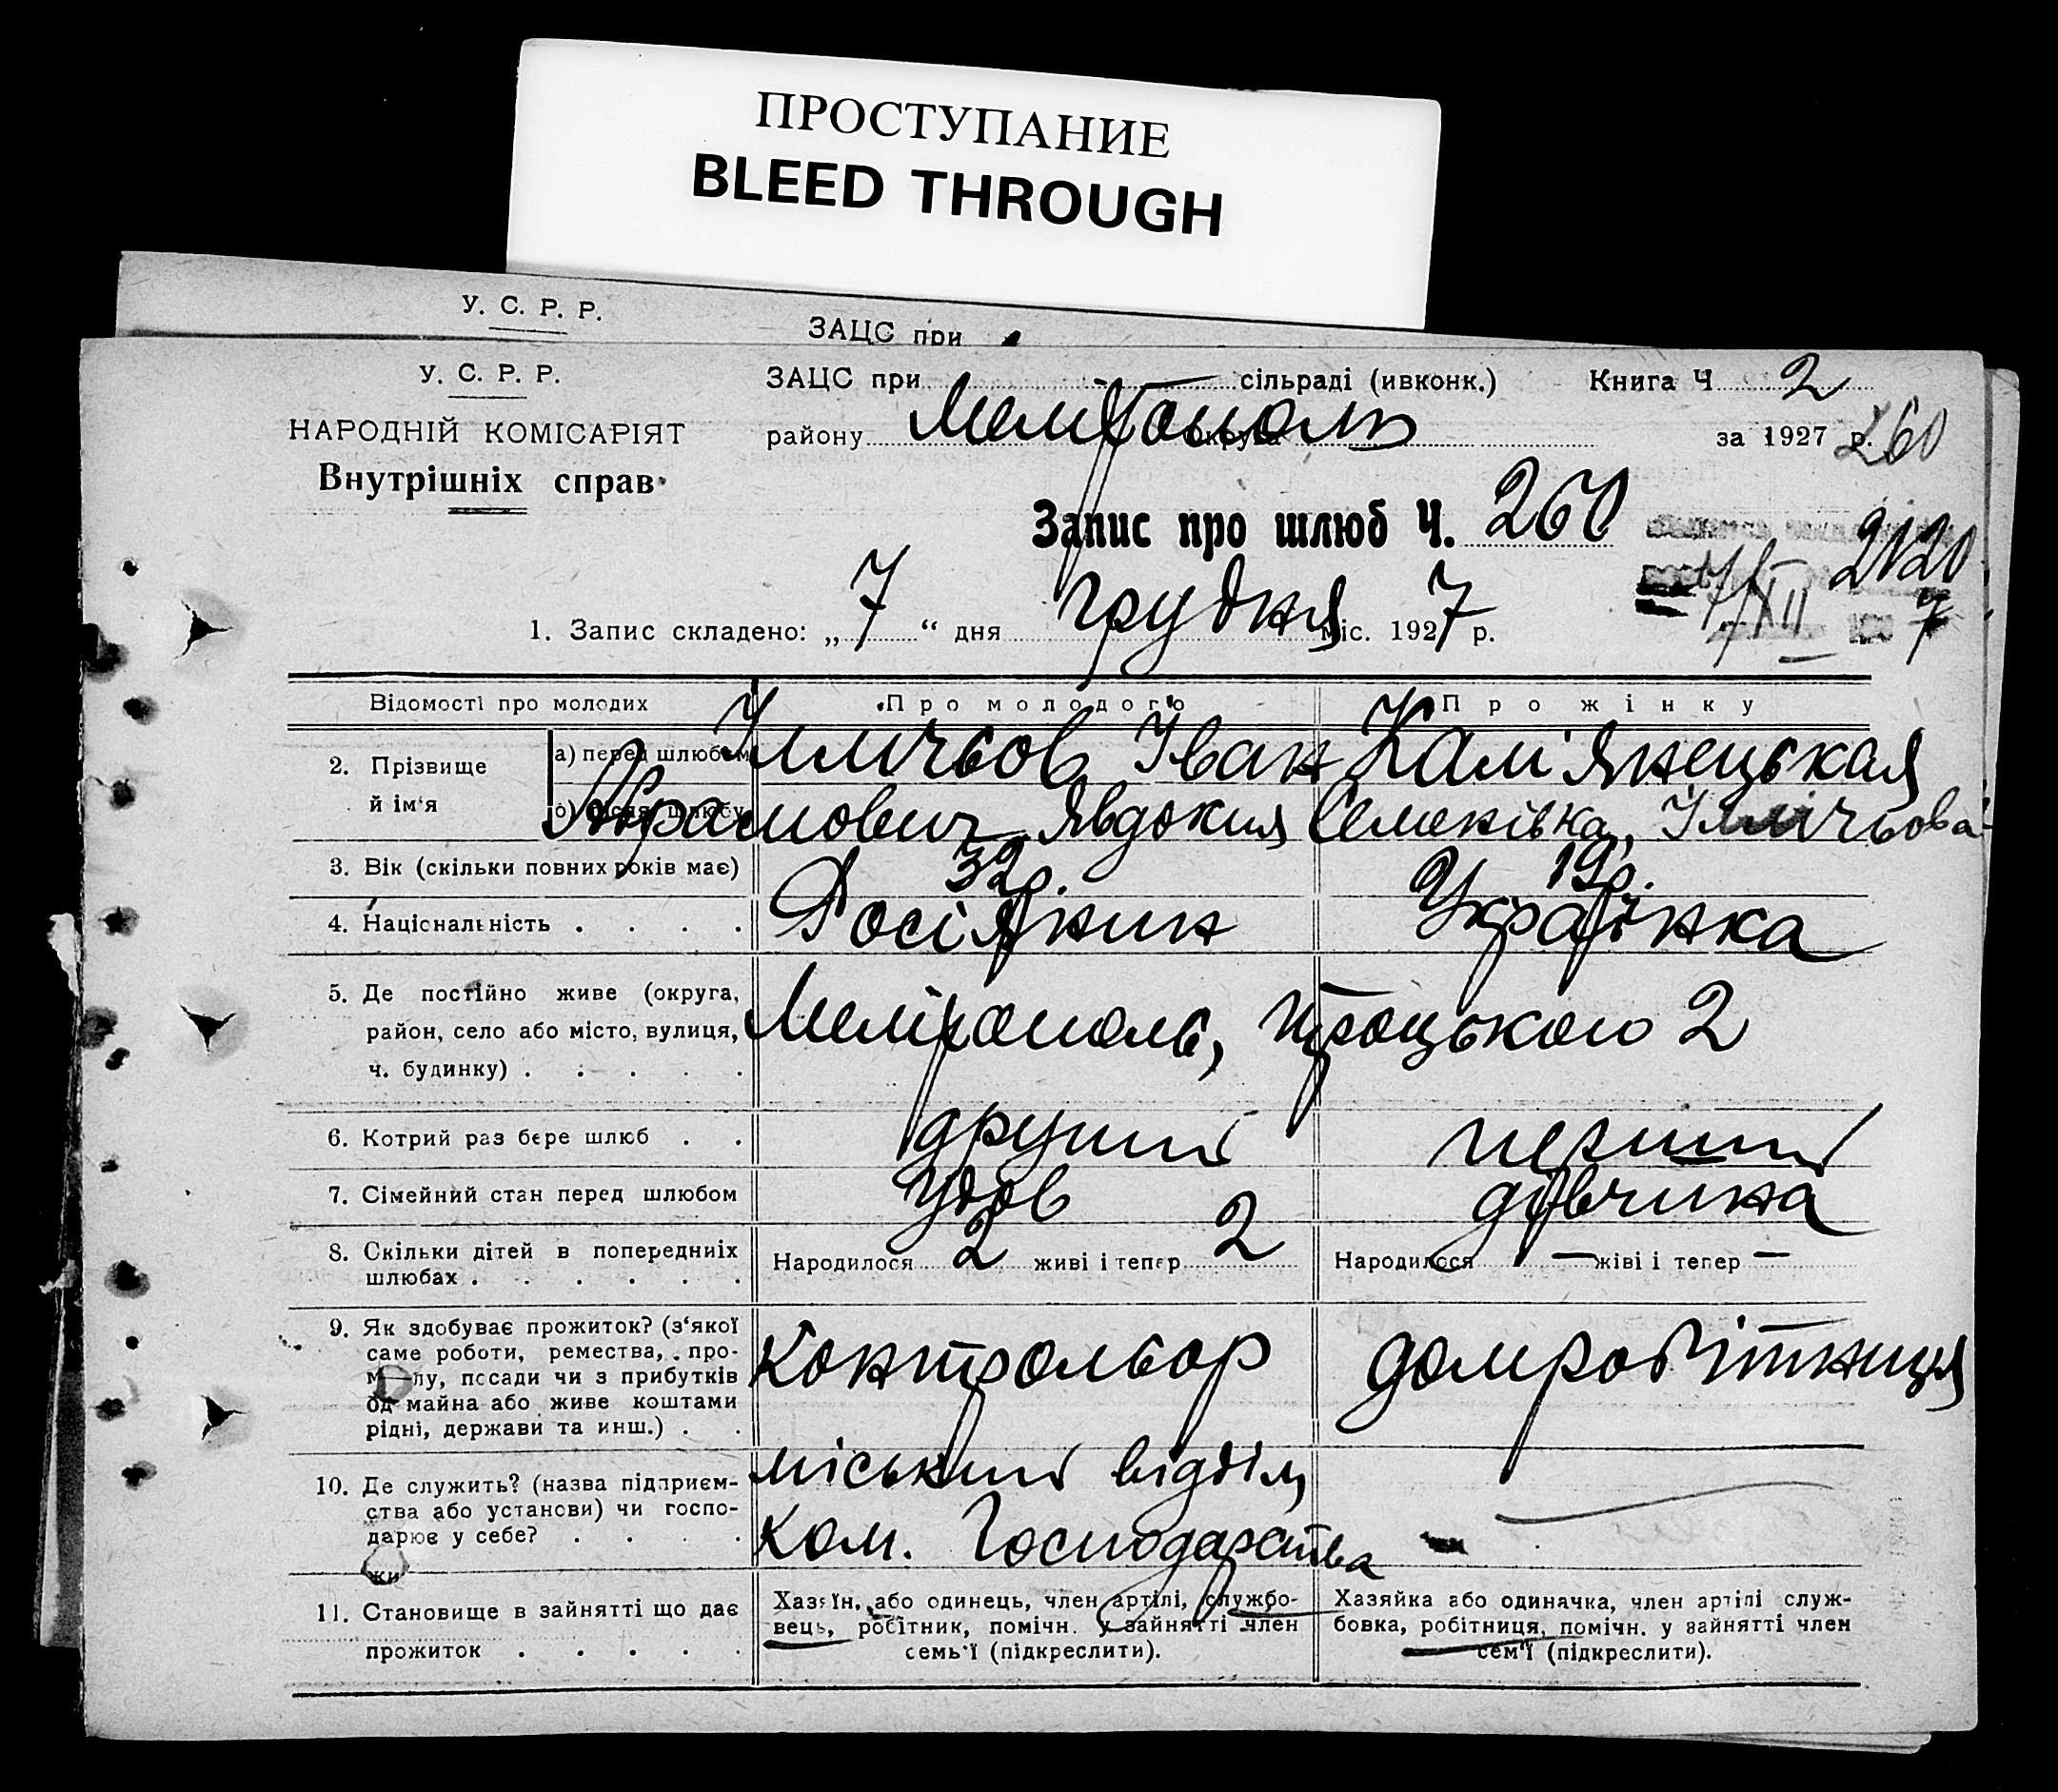 ПРОСТУПАНИЕ
BLEED THROUGH
У. С. Р. Р.
ЗАЦС при
У. С. Р. Р.
НАРОДНІЙ КОМІСАРІЯТ
Внутрішніх справ
ЗАЦС при сільраді (ивконк.) Книга Ч 2
району Мелітополь округа за 1927 р. 260
Запис про шлюб Ч. 260
2120
7/XII 7
1. Запис складено: „ 7 “ дня грудня міс. 1927 р.
Відомості про молодих Про молодого Про жінку
2. Прізвище й ім'я а) перед шлюбом Ілличьов Іван Кам'янецькая
б) після шлюбу Абрамович Явдокия Семенівна, Іллічьова
3. Вік (скільки повних років має) 32р. 19р.
4. Національність . . . . Росіянин Українка
5. Де постійно живе (округа,
район, село або місто, вулиця, Мелітополь, Троцького 2
ч. будинку) . . . . .
6. Котрий раз бере шлюб . . другий перший
7. Сімейний стан перед шлюбом Удов дівчина
8. Скільки дітей в попередниіх
шлюбах . . . . . . Народилося 2 живі і тепер 2 Народилося — живі і тепер —
9. Як здобуває прожиток? (з'якої
саме роботи, ремества, про-
м лу, посади чи з прибутків Контрольор домробітниця
од майна або живе коштами
рідні, держави та инш.) . .
10. Де служить? (назва підприєм- міський відділ
ства або установи) чи госпо-
дарює у себе? . . . . Ком. Господарства —
11. Становище в зайнятті що дає
прожиток . . . . .
Хазяїн, або одинець, член артілі, службо-
вець, робітник, помічн. у зайнятті член
семь'ї (підкреслити).
Хазяйка або одиначка, член артілі служ-
бовка, робітниця, помічн. у зайнятті член
сем'ї (підкреслити).